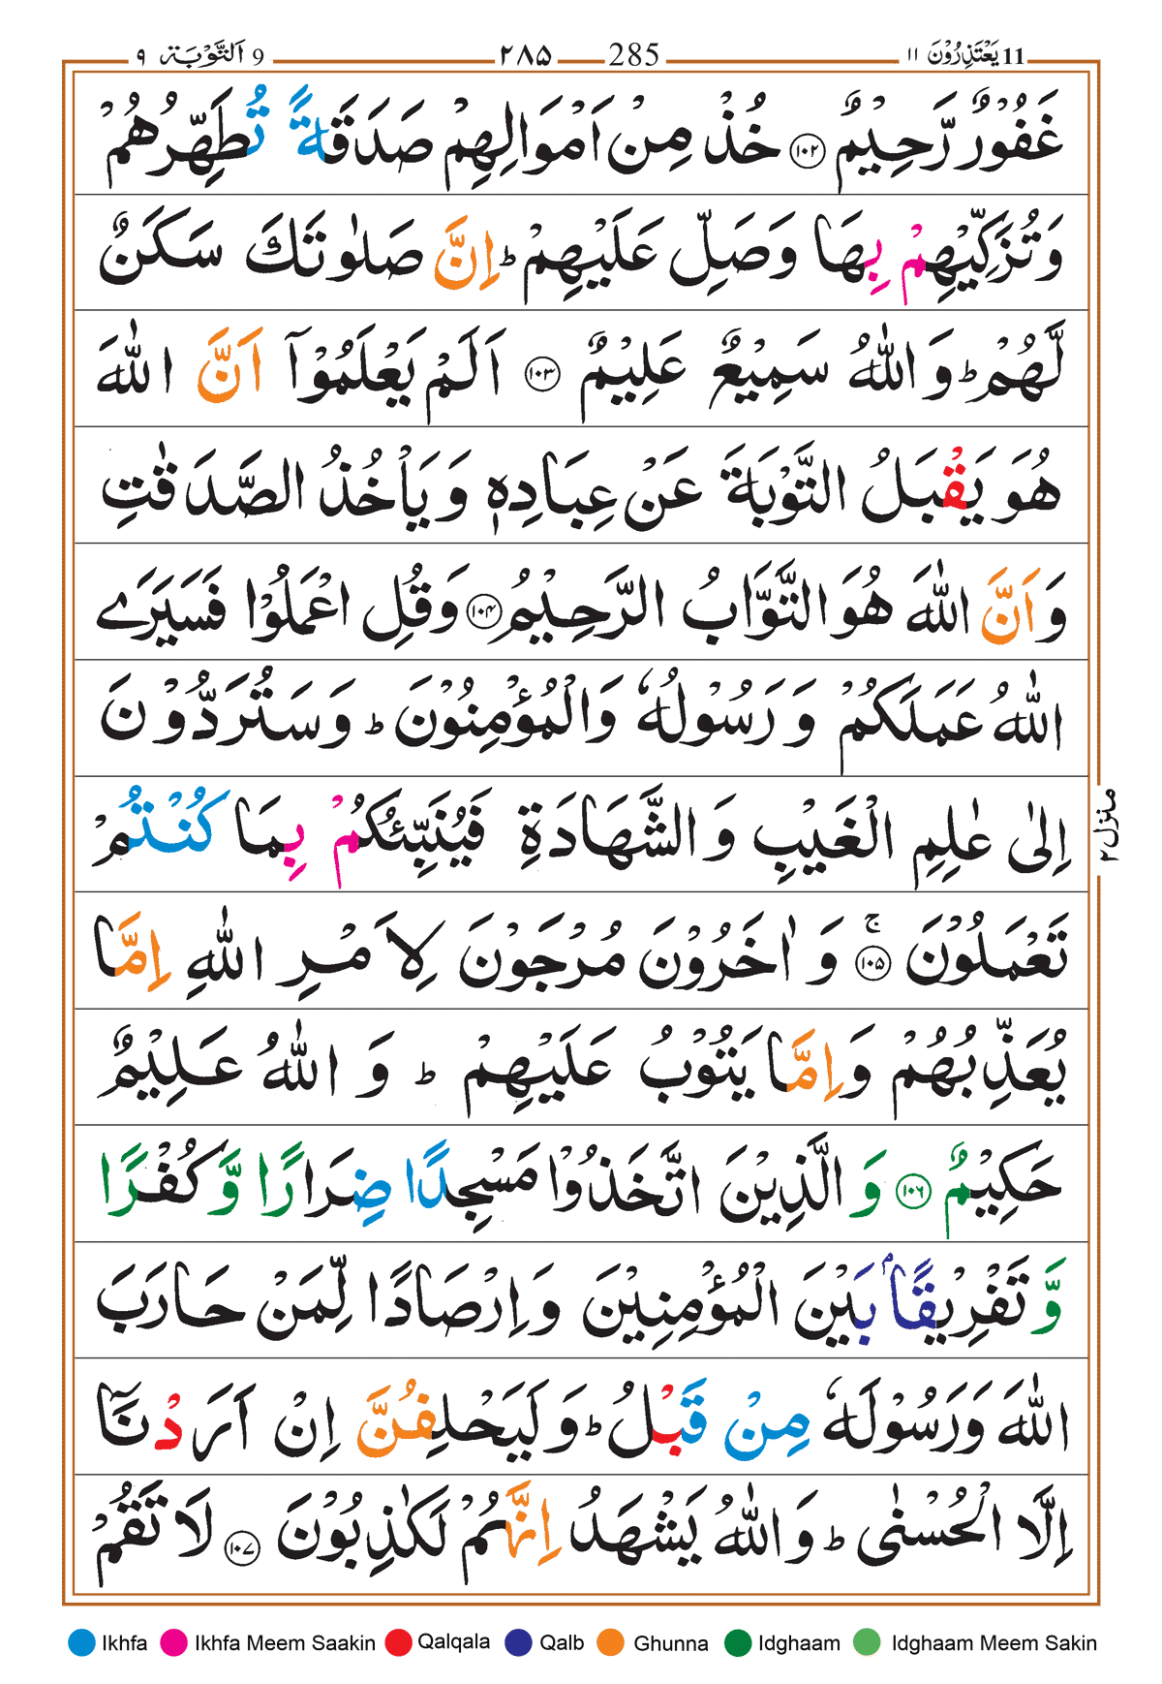 11 يَعْتَذِرُوْنَ ١١ 285 ٢٨٥ 9 اَلتَّوْبَة ٩
غَفُوْرٌ رَّحِيْمٌ ١٠٢ خُذْ مِنْ اَمْوَالِهِمْ صَدَقَةً تُطَهِّرُهُمْ
وَتُزَكِّيْهِمْ بِهَا وَصَلِّ عَلَيْهِمْ ؕ اِنَّ صَلٰوتَكَ سَكَنٌ
لَّهُمْ ؕ وَاللّٰهُ سَمِيْعٌ عَلِيْمٌ ١٠٣ اَلَمْ يَعْلَمُوْٓا اَنَّ اللّٰهَ
هُوَ يَقْبَلُ التَّوْبَةَ عَنْ عِبَادِهٖ وَيَاْخُذُ الصَّدَقٰتِ
وَاَنَّ اللّٰهَ هُوَ التَّوَّابُ الرَّحِيْمُ ١٠٤ وَقُلِ اعْمَلُوْا فَسَيَرَے
اللّٰهُ عَمَلَكُمْ وَرَسُوْلُهٗ وَالْمُؤْمِنُوْنَ ؕ وَسَتُرَدُّوْنَ
اِلٰى عٰلِمِ الْغَيْبِ وَالشَّهَادَةِ فَيُنَبِّئُكُمْ بِمَا كُنْتُمْ
تَعْمَلُوْنَ ۚ ١٠٥ وَاٰخَرُوْنَ مُرْجَوْنَ لِاَمْرِ اللّٰهِ اِمَّا
يُعَذِّبُهُمْ وَاِمَّا يَتُوْبُ عَلَيْهِمْ ؕ وَاللّٰهُ عَلِيْمٌ
حَكِيْمٌ ١٠٦ وَالَّذِيْنَ اتَّخَذُوْا مَسْجِدًا ضِرَارًا وَّكُفْرًا
وَّتَفْرِيْقًاۢ بَيْنَ الْمُؤْمِنِيْنَ وَاِرْصَادًا لِّمَنْ حَارَبَ
اللّٰهَ وَرَسُوْلَهٗ مِنْ قَبْلُ ؕ وَلَيَحْلِفُنَّ اِنْ اَرَدْنَآ
اِلَّا الْحُسْنٰى ؕ وَاللّٰهُ يَشْهَدُ اِنَّهُمْ لَكٰذِبُوْنَ ١٠٧ لَا تَقُمْ
منزل ٢
Ikhfa Ikhfa Meem Saakin Qalqala Qalb Ghunna Idghaam Idghaam Meem Sakin